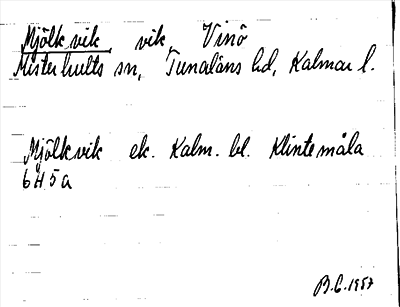 Mjölkvik vik Vinö
Misterhults sn, Tunaläns hd, Kalmar l.
Mjölkvik ek. Kalm. bl. Klintemåla
6H5a
B.C. 1957